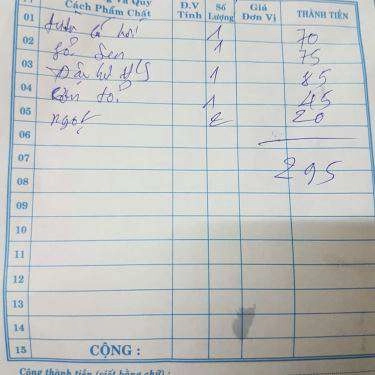 Cách Phẩm Chất Đ.V Tính Số Lượng Giá Đơn Vị THÀNH TIỀN
01 cá hồi 1 70
02 sen 1 75
03 1 85
04 1 45
05 ngọt 2 20
06
07 295
08
09
10
11
12
13
14
15 CỘNG :
Cộng thành tiền (viết bằng chữ) :